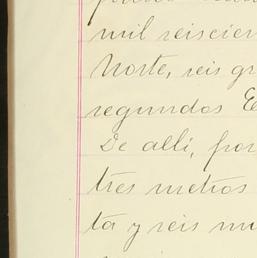 mil seiscien
Norte, seis gr
segundos E
De allí, por
tres metros
ta y seis mi